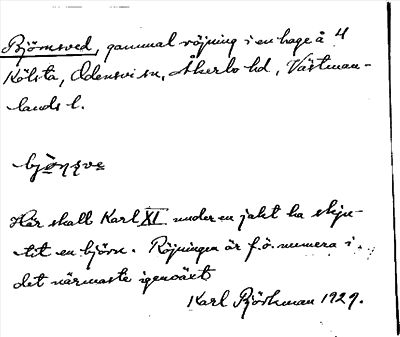 Björnsved, gammal röjning i en hage å 4
Kölsta, Odensvi sn, Åkerbo hd, Västman-
lands l.
bjö̱ṇṣve̱
Här skall Karl XI under en jakt ha skju-
tit en björn. Röjningen är f.ö. numera i
det närmaste igenväxt
Karl Björkman 1929.